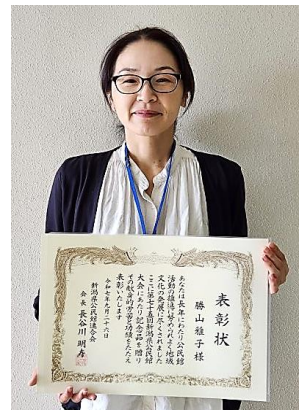 表彰状
勝山雅子様
あなたは長年にわたり公民館
活動の推進に努められよく地域
文化の発展に尽くされました
ここに第七十五回新潟県公民館
大会にあたり記念品を贈り
その献身的労苦と功績をたたえ
表彰いたします
令和七年九月二十六日
新潟県公民館連合会
会長 長谷川明彦